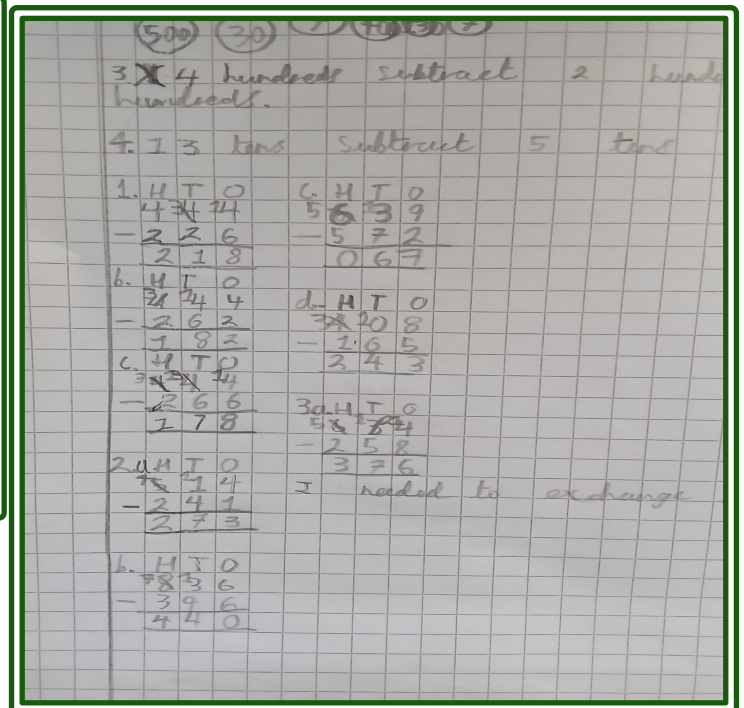 500 30
3. 4 hundreds subtract 2
hundreds.
4. 13 tens subtract 5 tens
1. H T O
4 3 4 14
- 2 2 6
2 1 8
b. H T O
3 4 14 4
- 2 6 2
1 8 2
c. H T O
3 4 4 14
- 2 6 6
1 7 8
2. a H T O
1 4
- 2 4 1
2 7 3
b. H T O
7 8 13 6
- 3 9 6
4 4 0
c. H T O
5 6 13 9
- 5 7 2
0 6 7
d. H T O
3 4 10 8
- 1 6 5
2 4 3
3a. H T O
5 6 4
- 2 5 8
3 7 6
I needed to exchange